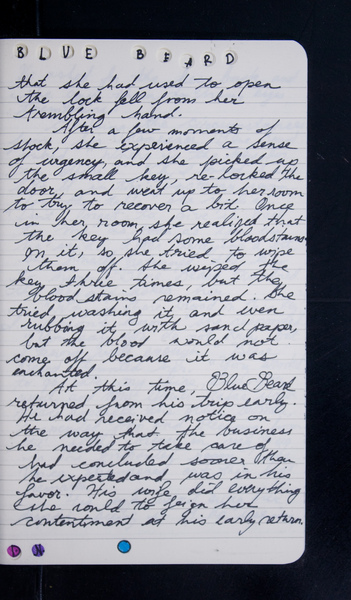 BLUE BEARD
that she had used to open
the lock fell from her
trembling hand.
After a few moments of
shock, she experienced a sense
of urgency, and she picked up
the small key, re-locked the
door, and went up to her room
to try to recover a bit. Once
in her room, she realized that
the key had some bloodstains
on it, so she tried to wipe
them off. She wiped the
key three times, but the
blood stains remained. She
tried washing it, and even
rubbing it with sand paper,
but the blood would not
come off because it was
enchanted.
At this time, Blue Beard
returned from his trip early.
He had received notice on
the way that the business
he needed to take care of
had concluded sooner than
he expected and was in his
favor. His wife did everything
she could to feign her
contentment at his early return.
D N